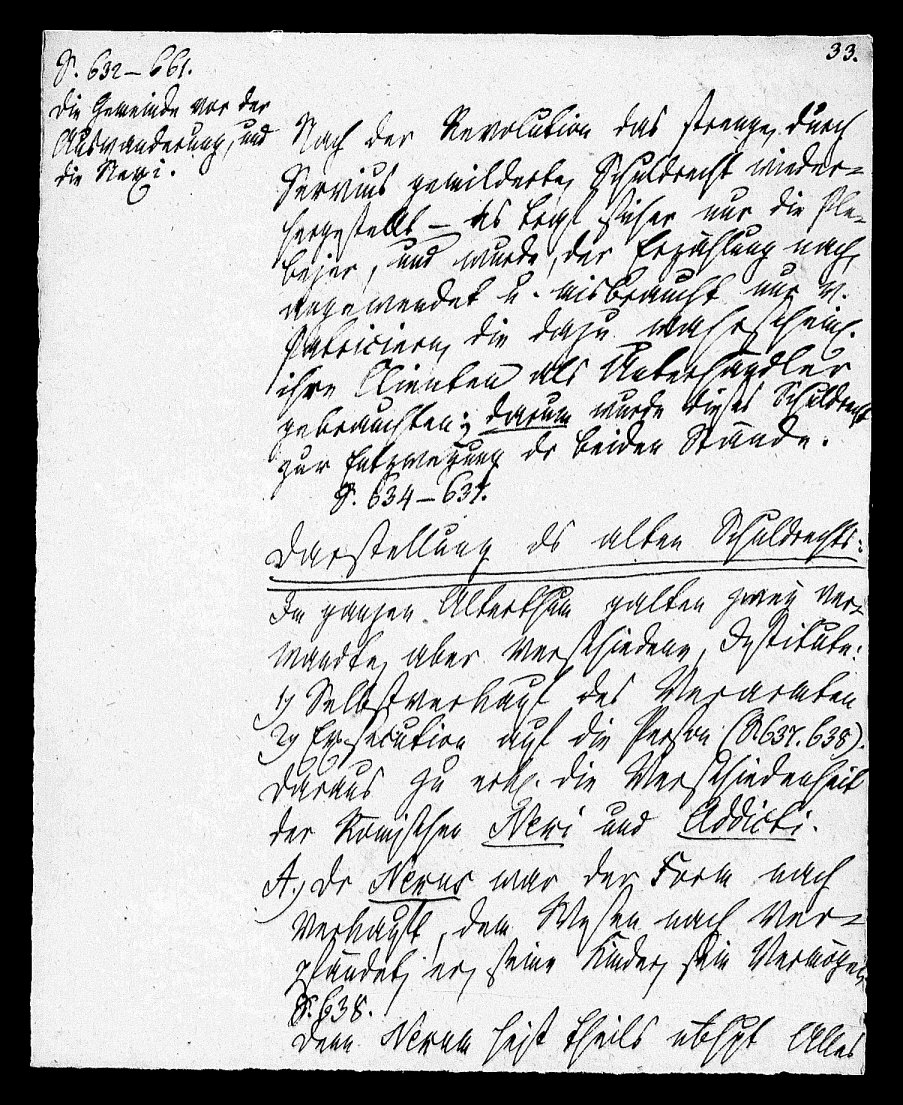 33.
S. 632–661.
Die Gemeinde vor der
Auswanderung, und
die Nexi.
Nach der Revolution das strenge, durch
Servius gemilderte, Schuldrecht wieder-
hergestellt – es traf sicher nur die Ple-
bejer, und wurde, der Erzählung nach,
angewendet u. misbraucht nur v.
Patriciern, die dazu wahrscheinl.
ihre Clienten als Unterhändler
gebrauchten; darum wurde dieses Schuldrecht
zur Entzweyung der beiden Stände.
S. 634–637.
Darstellung des alten Schuldrechts:
Im ganzen Alterthum galten zwei ver-
wandte, aber verschiedene, Institute:
1) Selbstverkauf des Verarmten
2) Execution auf die Person (S. 637. 638).
Daraus zu erkl. die Verschiedenheit
der Römischen Nexi und Addicti.
A.) Der Nexus war der Form nach
verkauft, dem Wesen nach ver-
pfändet, er, seine Kinder, sein Vermögen,
S. 638.
Denn Nexum heißt theils übhpt Alles